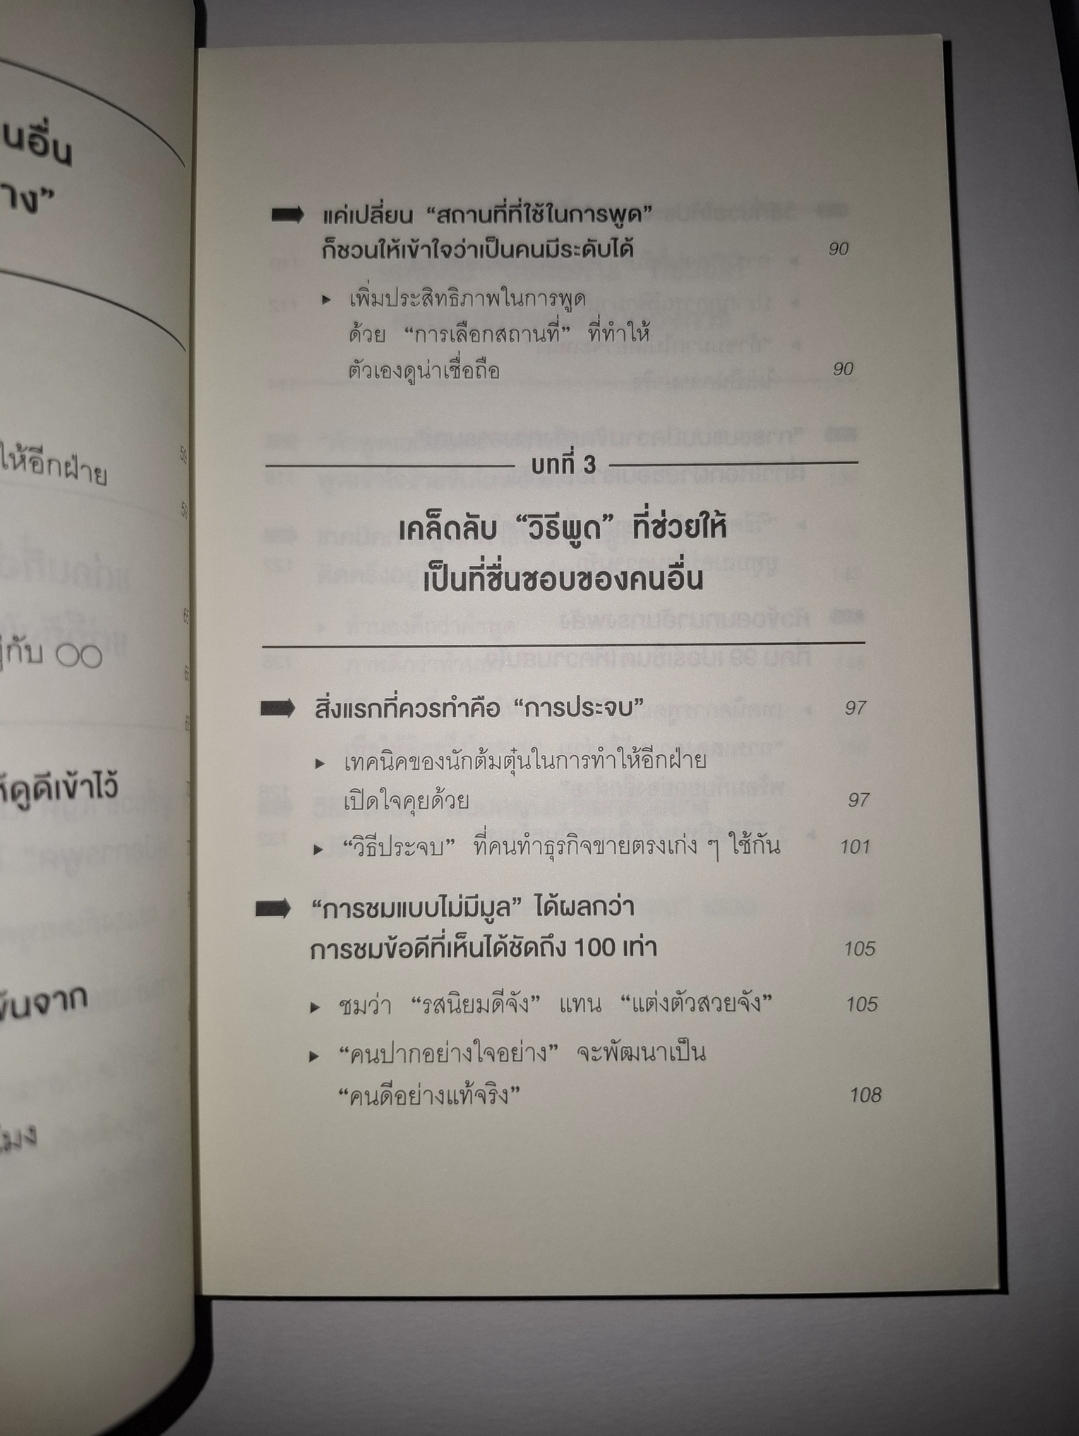 นอื่น
าง”
ให้อีกฝ่าย
กับ ○○
ดูดีเข้าไว้
ขึ้นจาก
โมง
แค่เปลี่ยน “สถานที่ที่ใช้ในการพูด”
ก็ชวนให้เข้าใจว่าเป็นคนมีระดับได้ 90
▸ เพิ่มประสิทธิภาพในการพูด
ด้วย “การเลือกสถานที่” ที่ทำให้
ตัวเองดูน่าเชื่อถือ 90
บทที่ 3
เคล็ดลับ “วิธีพูด” ที่ช่วยให้
เป็นที่ชื่นชอบของคนอื่น
สิ่งแรกที่ควรทำคือ “การประจบ” 97
▸ เทคนิคของนักต้มตุ๋นในการทำให้อีกฝ่าย
เปิดใจคุยด้วย 97
▸ “วิธีประจบ” ที่คนทำธุรกิจขายตรงเก่ง ๆ ใช้กัน 101
“การชมแบบไม่มีมูล” ได้ผลกว่า
การชมข้อดีที่เห็นได้ชัดถึง 100 เท่า 105
▸ ชมว่า “รสนิยมดีจัง” แทน “แต่งตัวสวยจัง” 105
▸ “คนปากอย่างใจอย่าง” จะพัฒนาเป็น
“คนดีอย่างแท้จริง” 108